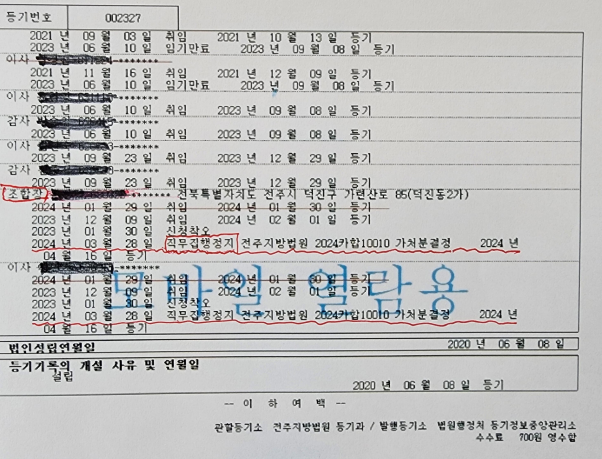 등기번호 002327
2021 년 09 월 03 일 취임 2021 년 10 월 13 일 등기
2023 년 06 월 10 일 임기만료 2023 년 09 월 08 일 등기
이사 -*******
2021 년 11 월 16 일 취임 2021 년 12 월 09 일 등기
2023 년 06 월 10 일 임기만료 2023 년 09 월 08 일 등기
이사 -*******
2023 년 06 월 10 일 취임 2023 년 09 월 08 일 등기
감사 -*******
2023 년 06 월 10 일 취임 2023 년 09 월 08 일 등기
이사 -*******
2023 년 09 월 23 일 취임 2023 년 12 월 29 일 등기
감사 -*******
2023 년 09 월 23 일 취임 2023 년 12 월 29 일 등기
조합장 -******* 전북특별자치도 전주시 덕진구 가련산로 85(덕진동2가)
2024 년 01 월 29 일 취임 2024 년 01 월 30 일 등기
2023 년 12 월 09 일 취임 2024 년 02 월 01 일 등기
2023 년 01 월 30 일 신청착오
2024 년 03 월 28 일 직무집행정지 전주지방법원 2024카합10010 가처분결정 2024 년
04 월 16 일 등기
이사 -*******
2024 년 01 월 29 일 취임 2024 년 01 월 30 일 등기
2023 년 12 월 09 일 취임 2024 년 02 월 01 일 등기
2023 년 01 월 30 일 신청착오
2024 년 03 월 28 일 직무집행정지 전주지방법원 2024카합10010 가처분결정 2024 년
04 월 16 일 등기
모바일 열람용
법인성립연월일 2020 년 06 월 08 일
등기기록의 개설 사유 및 연월일
설립
2020 년 06 월 08 일 등기
-- 이 하 여 백 --
관할등기소 전주지방법원 등기과 / 발행등기소 법원행정처 등기정보중앙관리소
수수료 700원 영수함